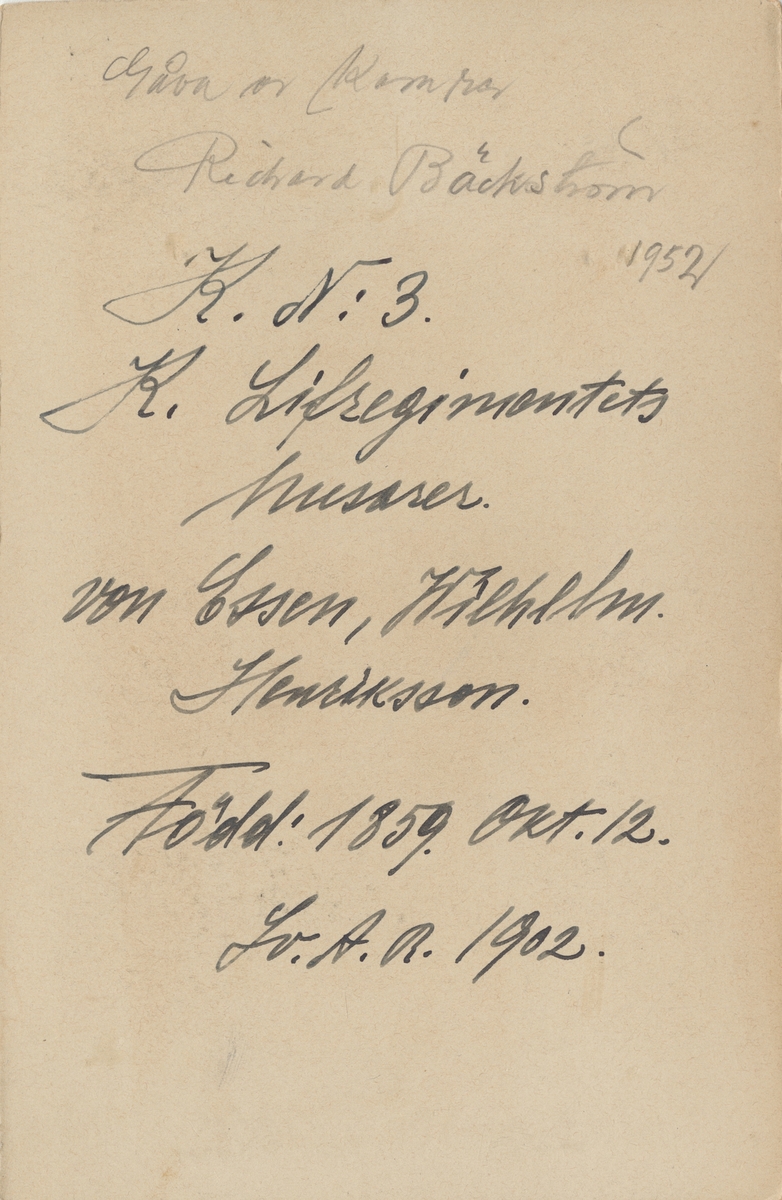 Gåva av Kamrer
Richard Bäckström
1952
K. N: 3.
K. Lifregimentets
husarer.
von Essen, Wilhllm.
Henriksson.
Född: 1859. Okt. 12.
Sv. A. R. 1902.